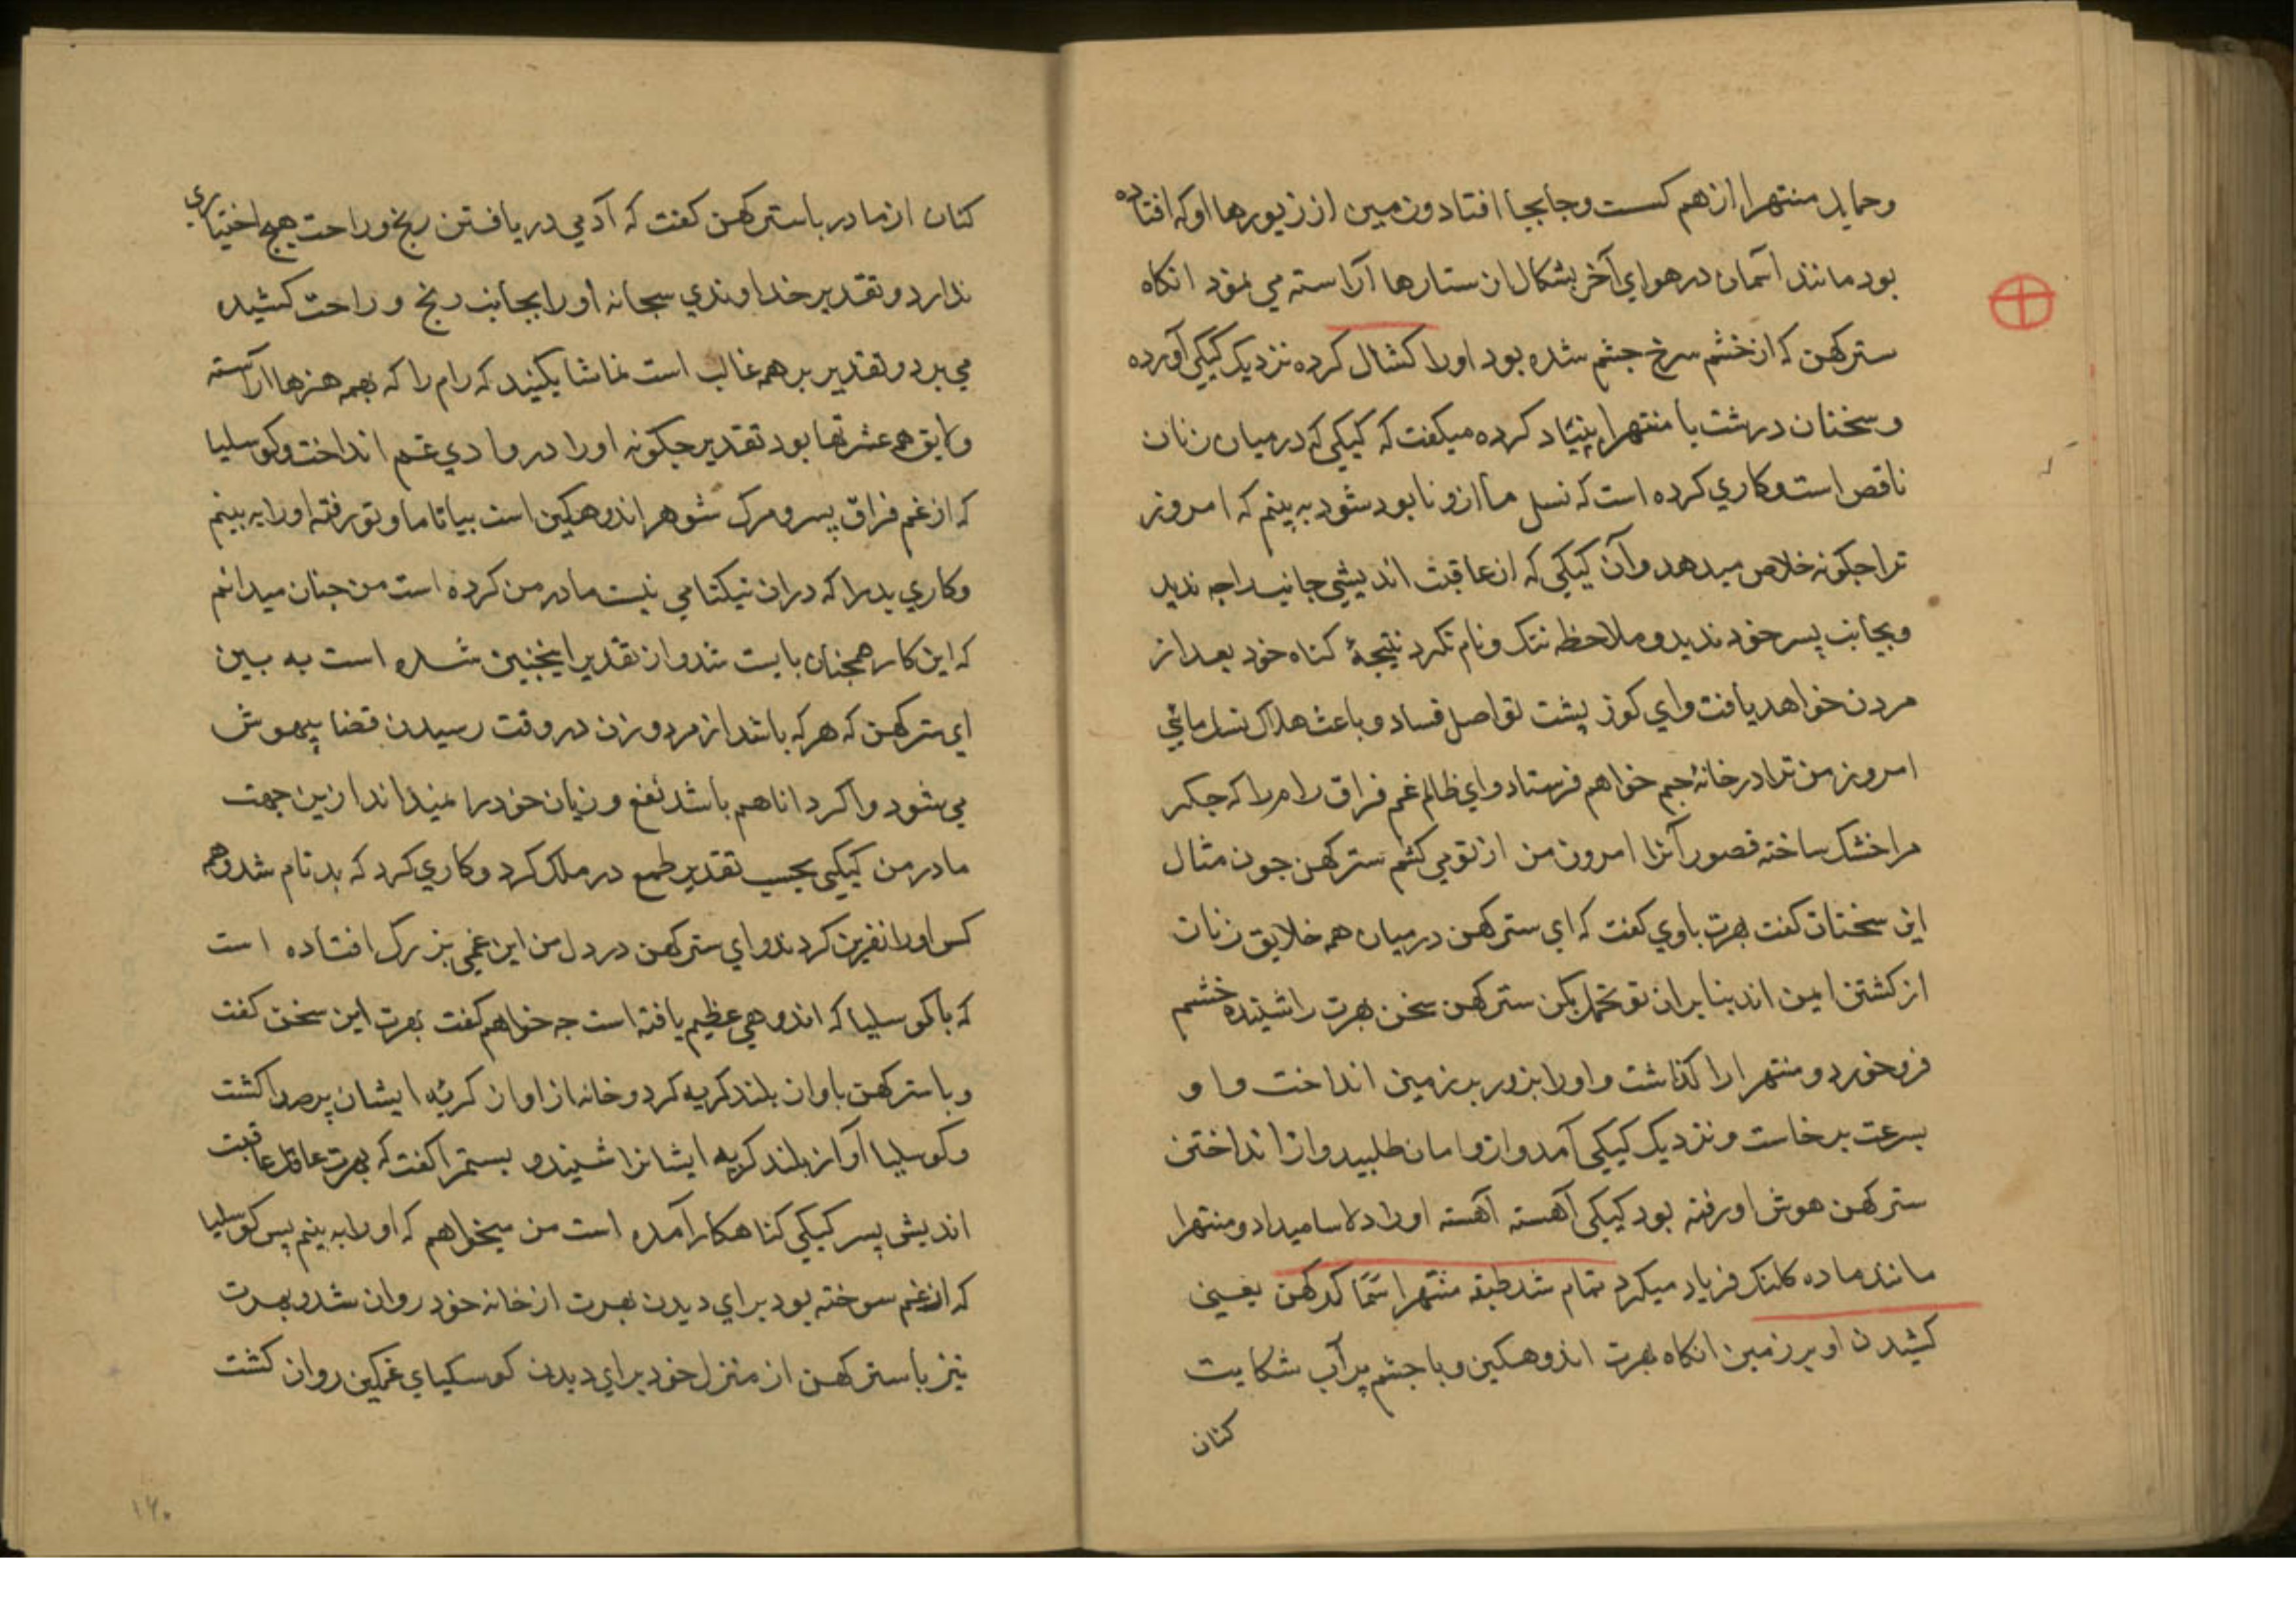 وحمایل منتهرا از هم کست وجابجا افتاد وزمین از زیورها او که افتاده
بود مانند آسمان در هوای آخر بشکال از ستارها آراسته می نمود انکاه
سترکهن که از خشم سرخ جشم شده بود او را کشال کرده نزدیک کیکی آورده
وسخنان درشت با منتهرا بنیاد کرده میکفت که کیکی که درمیان زنان
ناقص است وکاری کرده است که نسل ما ازو نابود شود به بینم که امروز
ترا جکونه خلاص میدهد وآن کیکی که از عاقبت اندیشی جانب راجه ندید
وبجانب پسر خود ندید وملاحظه ننک ونام نکرد نتیجۀ کناه خود بعد از
مردن خواهد یافت وای کوز پشت تو اصل فساد وباعث هلاک نسل مائی
امروز من ترا در خانۀ جم خواهم فرستاد وای ظالم غم فراق رام را که جکر
مرا خشک ساخته قصور آنرا امروز من از تو می کشم سترکهن جون مثال
این سخنان کفت بهرت باوی کفت که ای سترکهن درمیان همه خلایق زنان
از کشتن ایمن اند بنابران تو تحمل بکن سترکهن سخن بهرت را شنیده خشم
فرو خورد ومنتهرا را کذاشت واو را بزور بر زمین انداخت واو
بسرعت برخاست ونزدیک کیکی آمد وازو امان طلبید واز انداختن
سترکهن هوش او رفته بود کیکی آهسته آهسته او را دلاسا میداد ومنتهرا
مانند ماده کلنک فریاد میکرد تمام شد طبقه منتهرا سَمَا کدکهن یعنی
کشیدن او بر زمین انکاه بهرت اندوهکین وبا جشم پر آب شکایت
کنان
کنان از مادر با سترکهن کفت که آدمی در یافتن رنج وراحت هیج اختیاری
ندارد وتقدیر خداوندی سبحانه او را بجانب رنج وراحت کشیده
می برد وتقدیر بر همه غالب است تماشا بکنید که رام را که بهمه هنرها آراسته
ولایق همه عشرتها بود تقدیر جکونه او را در وادی غم انداخت وکوسلیا
که از غم فراق پسر ومرک شوهر اندوهکین است بیا تا ما وتو رفته او را به بینم
وکاری بد را که دران نیکنامی نیست مادر من کرده است من جنان میدانم
که این کار همجنان بایست شد واز تقدیر اینجنین شده است به بین
ای سترکهن که هر که باشد از مرد وزن در وقت رسیدن قضا بیهوش
می شود واکر دانا هم باشد نفع وزیان خود را نمیداند ازین جهت
مادر من کیکی بحسب تقدیر طمع در ملک کرد وکاری کرد که بدنام شد وهمه
کس او را نفرین کردند وای سترکهن در دل من این غمی بزرک افتاده است
که با کوسلیا که اندوهی عظیم یافته است جه خواهم کفت بهرت این سخن کفت
وبا سترکهن باواز بلند کریه کرد وخانه از اواز کریۀ ایشان پر صدا کشت
وکوسلیا آواز بلند کریه ایشانرا شنید و بسمترا کفت که بهرت عاقل عاقبت
اندیش پسر کیکی کناهکار آمده است من میخواهم که او را به بینم پس کوسلیا
که از غم سوخته بود برای دیدن بهرت از خانه خود روان شد وبهرت
نیز با سترکهن از منزل خود برای دیدن کوسلیای غمکین روان کشت
۱۶۰